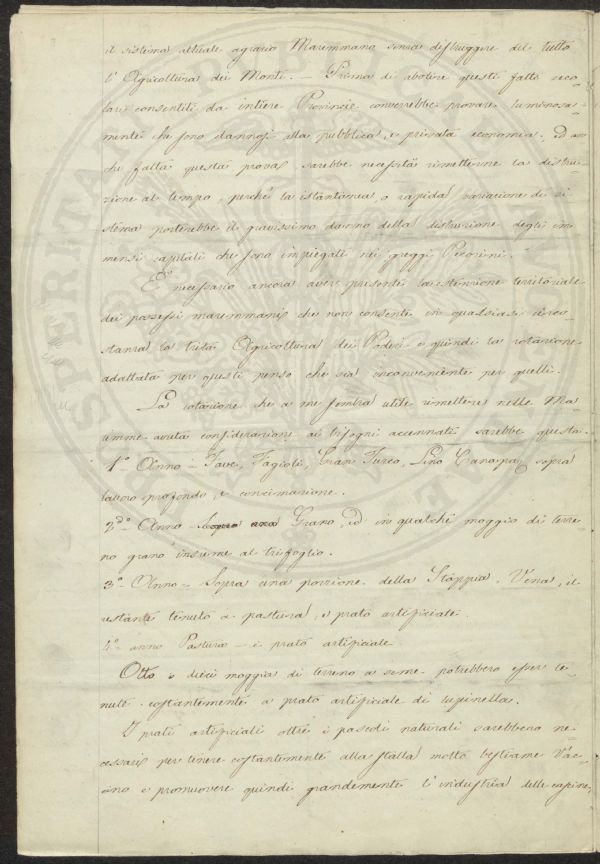 il sistema attuale agrario Maremmano senza distruggere del tutto
l'Agricoltura dei Monti. - Prima di abolire questi fatti seco-
lari consentiti da intiere Provincie converrebbe provare luminosa-
mente che sono dannosi alla pubblica, e privata economia, ed an
che fatta questa prova, sarebbe necessità rimetterne la distru-
zione al tempo, perché la istantanea, o rapida variazione di si-
stema porterebbe il gravissimo danno della distruzione degli im-
mensi capitali che sono impiegati nei greggi Pecorini.
E' necessario ancora aver presente la estensione territoriale
dei paesi maremmani che non consente in qualsiasi circo-
stanza la trita Agricoltura dei Poderi e quindi la rotazione
adattata per questi penso che sia inconveniente per quelli.
La rotazione che a me sembra utile rimettere nelle Ma
remme avuta considerazione ai bisogni accennati sarebbe questa.
1º Anno - Fave, Fagioli, Gran Turco, Lino, Canapa, sopra
lavoro profondo, e concimazione.
2do Anno - Sopra una Grano, ed in qualche moggio di terre
no grano insieme al trifoglio.
3º Anno - Sopra una porzione della Stoppia Vena, il
restante tenuto a pastura, e prato artificiale.
4º anno Pastura - e prato artificiale
Otto o dieci moggia di terreno a seme potrebbero esser te
nute costantemente a prato artificiale di lupinella.
I prati artificiali oltre i pascoli naturali sarebbero ne
cessari per tenere costantemente alla stalla molto bestiame Vac-
cino e promuovere quindi grandemente l'industria delle cascine,
PUBLICA